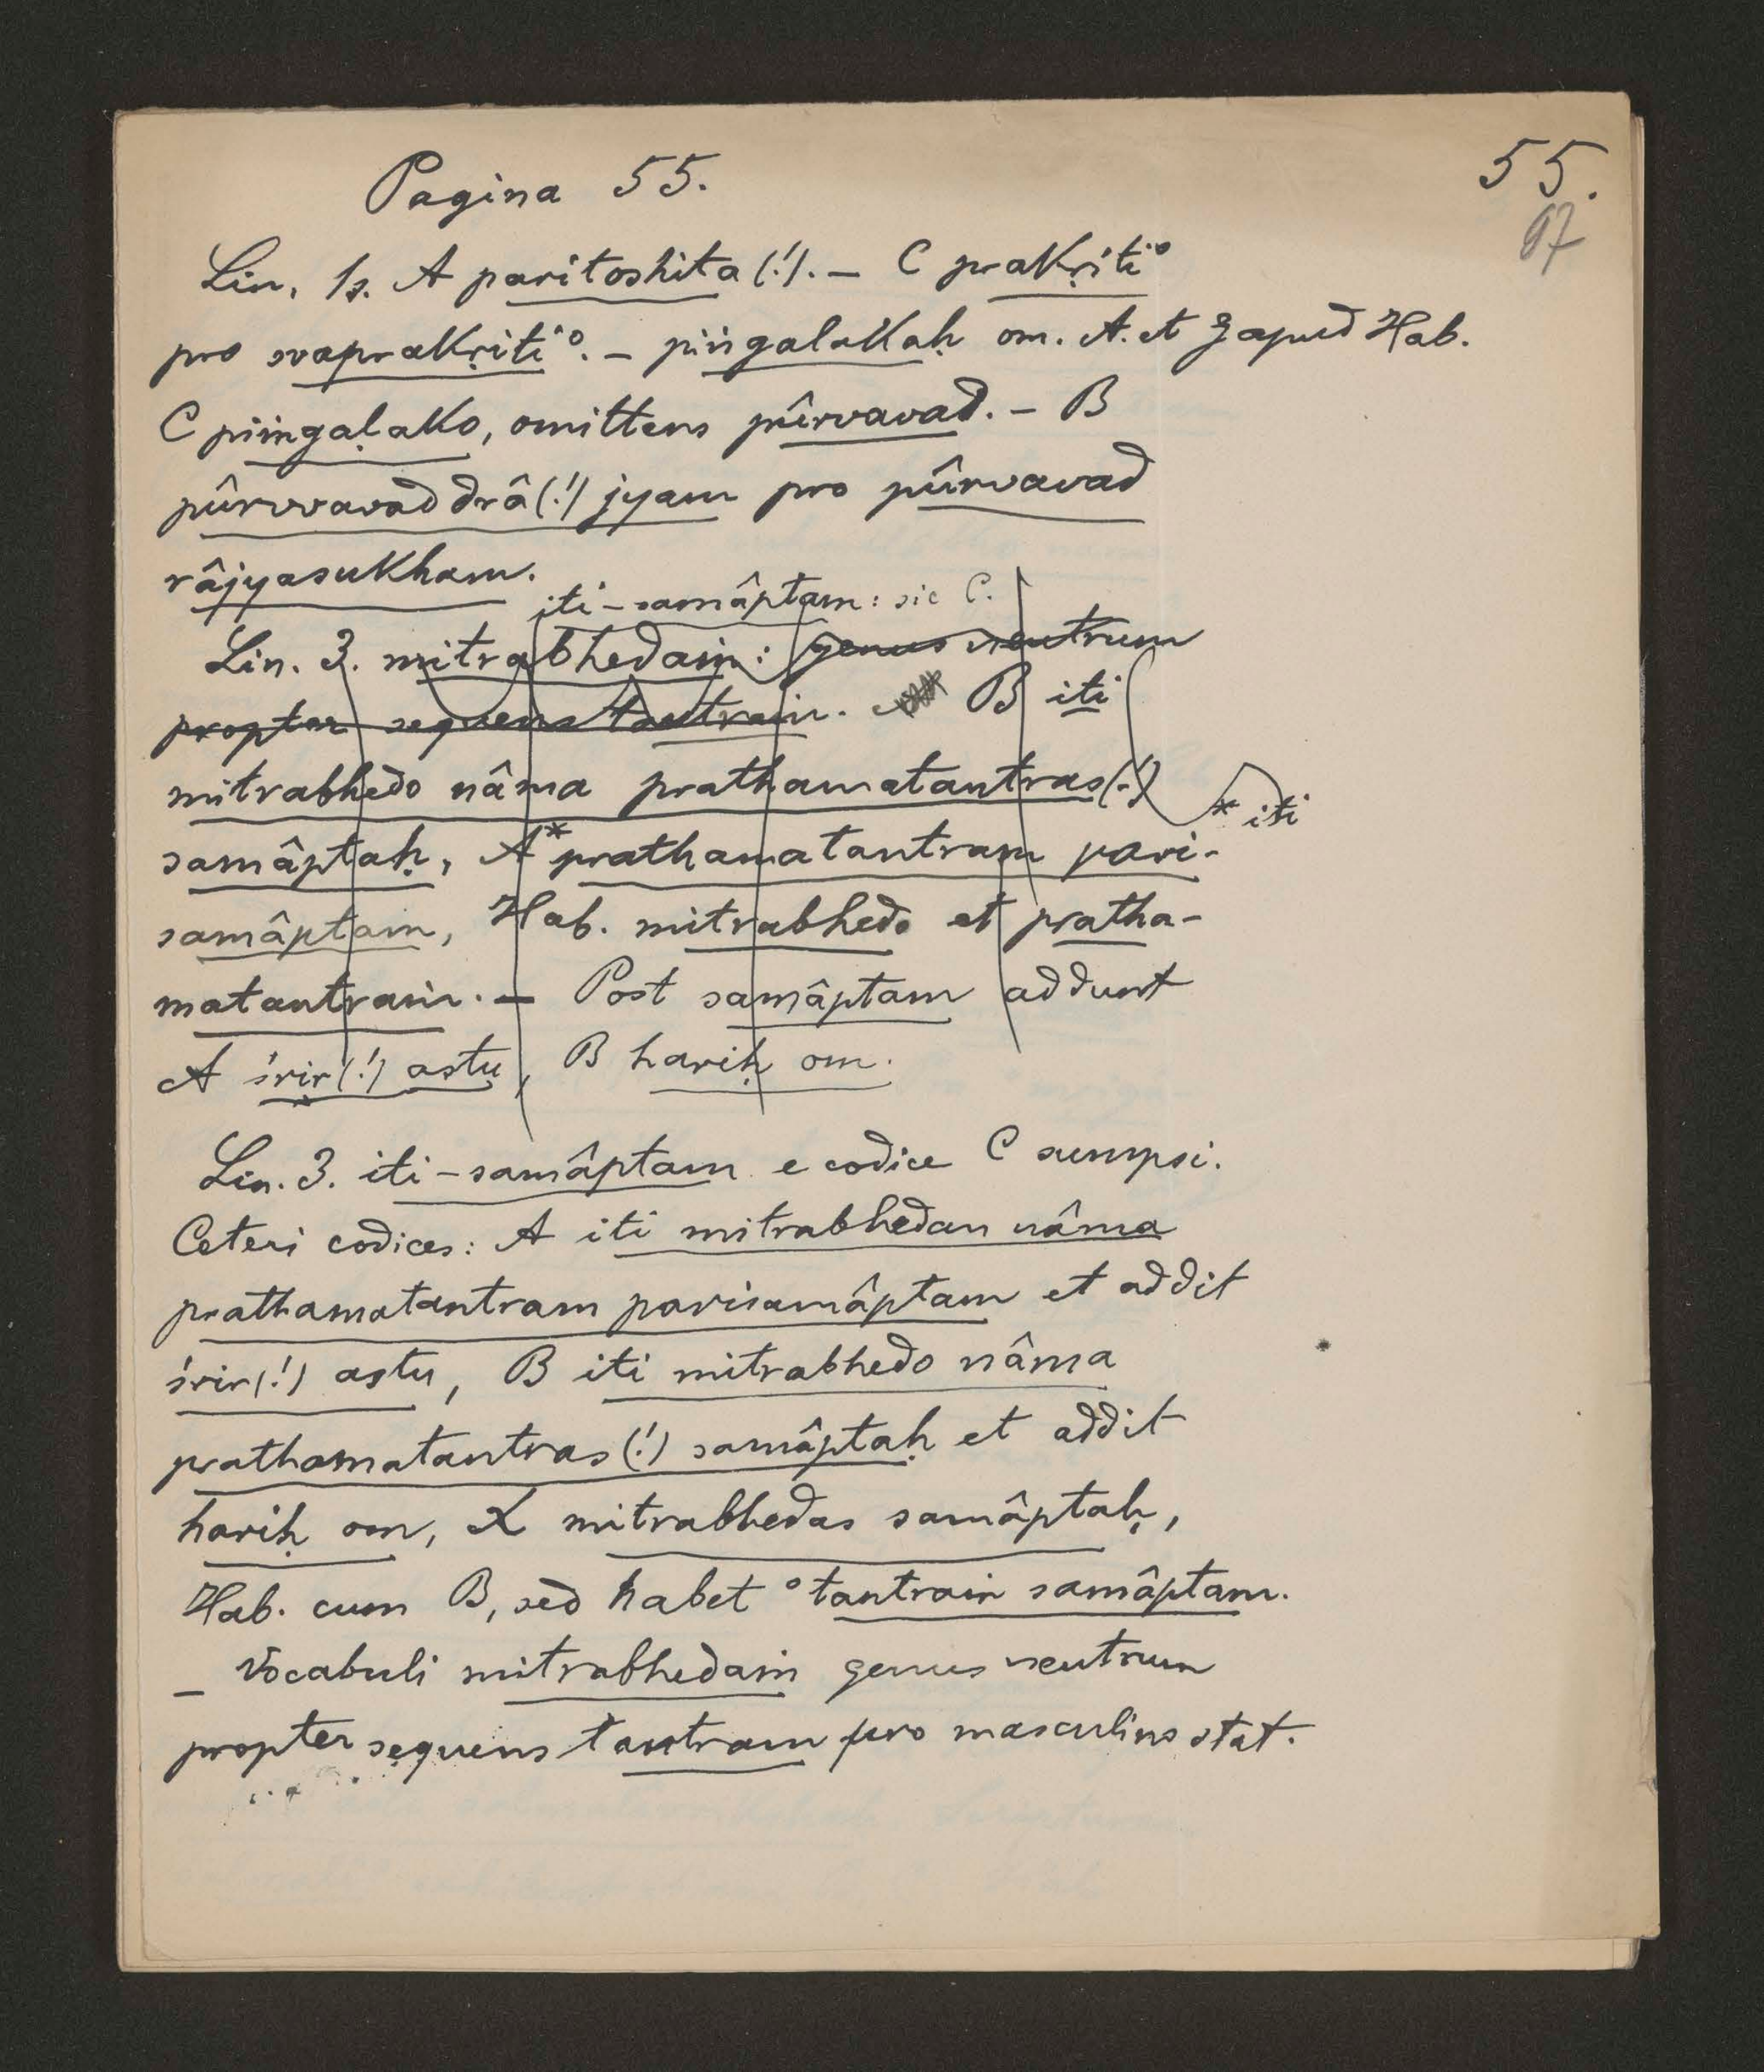 Pagina 55.
55.
97
Lin. 1s. A paritoshita (!). — C prakṛiti°
pro svaprakṛiti°. — piṅgalakaḥ om. A. et ζ apud Hab.
C piiṅgaḷako, omittens pûrvavad. — B
pûrvvavad drâ(!)jyam pro pûrvavad
râjyasukham.
iti-samâptam: sic C.
Lin. 3. mitrabhedaṁ: genus neutrum
propter sequens tantraṁ. B iti
mitrabhedo nâma prathamatantras(!)
* iti
samâptaḥ, A* prathamatantram pari-
samâptaṁ, Hab. mitrabhedo et pratha-
matantraṁ. — Post samâptam addunt
A śrir(!) astu, B hariḥ om.
Lin. 3. iti-samâptam e codice C sumpsi.
Ceteri codices: A iti mitrabhedan nâma
prathamatantram parisamâptam et addit
śrir(!) astu, B iti mitrabhedo nâma
prathamatantras(!) samâptaḥ et addit
hariḥ om, X mitrabhedas samâptaḥ,
Hab. cum B, sed habet °tantraṁ samâptam.
— Vocabuli mitrabhedaṁ genus neutrum
propter sequens tantram pro masculino stat.